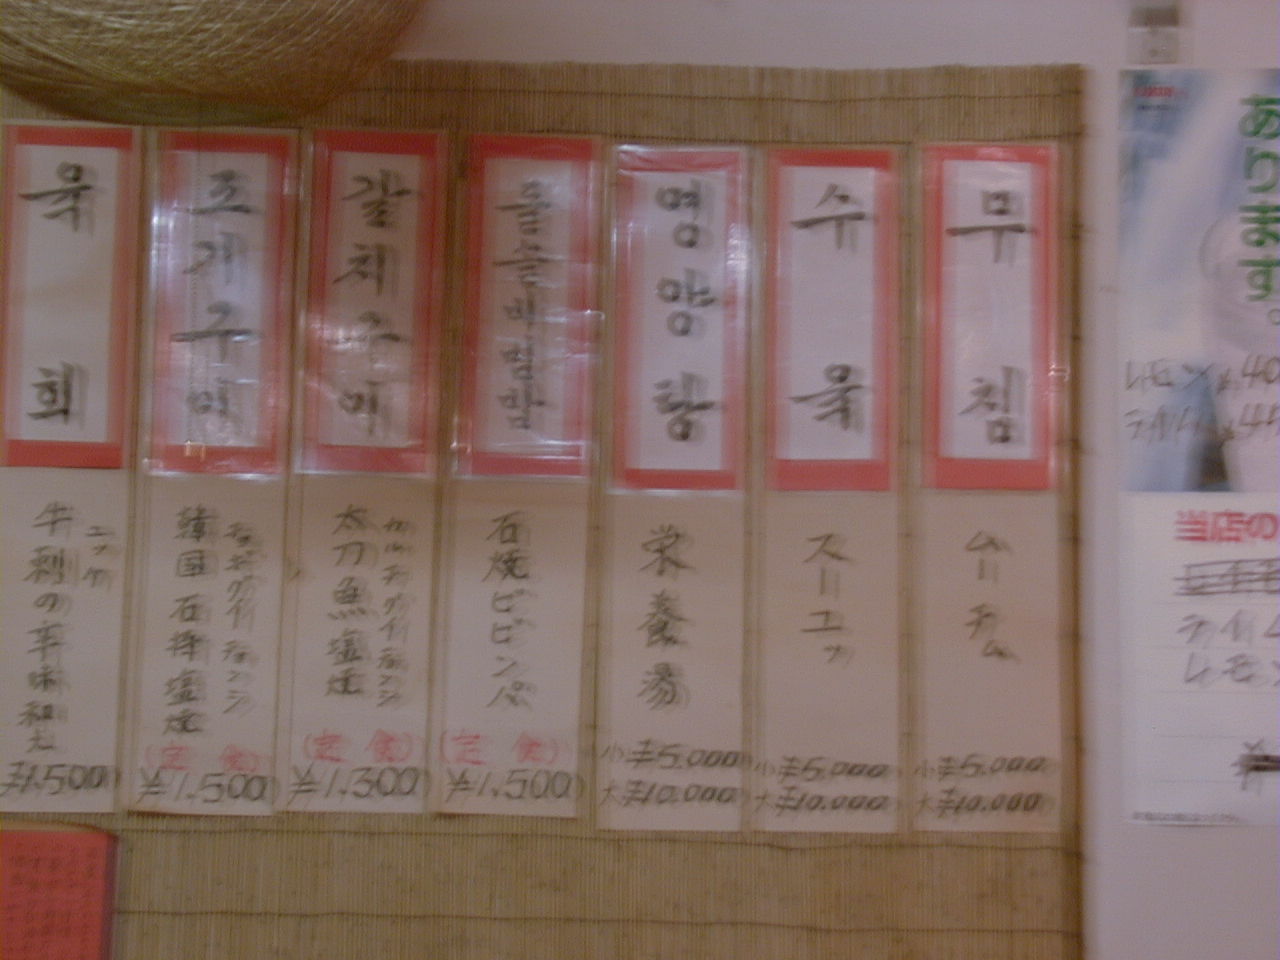 육회
牛刺の辛味和え
ユッケ
¥1,500
조개구이
韓国石焼塩焼
(定食)
¥1,500
갈치구이
太刀魚塩焼
カルチグイ
(定食)
¥1,300
돌솥비빔밥
石焼ビビンパ
(定食)
¥1,500
영양탕
栄養湯
小¥5,000
大¥10,000
수육
スーユッ
小¥5,000
大¥10,000
무침
ムーチム
小¥5,000
大¥10,000
あります。
レモン
ライム
当店の
ライム
レモン
¥